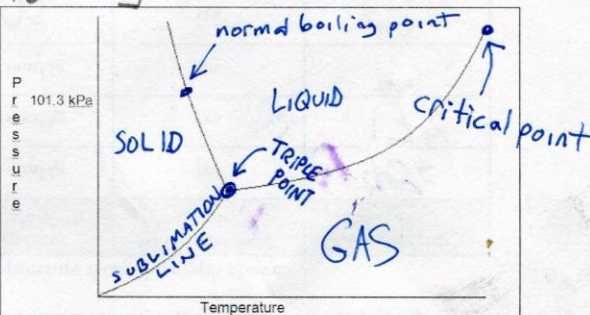 normal boiling point
Pressure
101.3 kPa
LIQUID
critical point
SOLID
TRIPLE
POINT
GAS
SUBLIMATION
LINE
Temperature